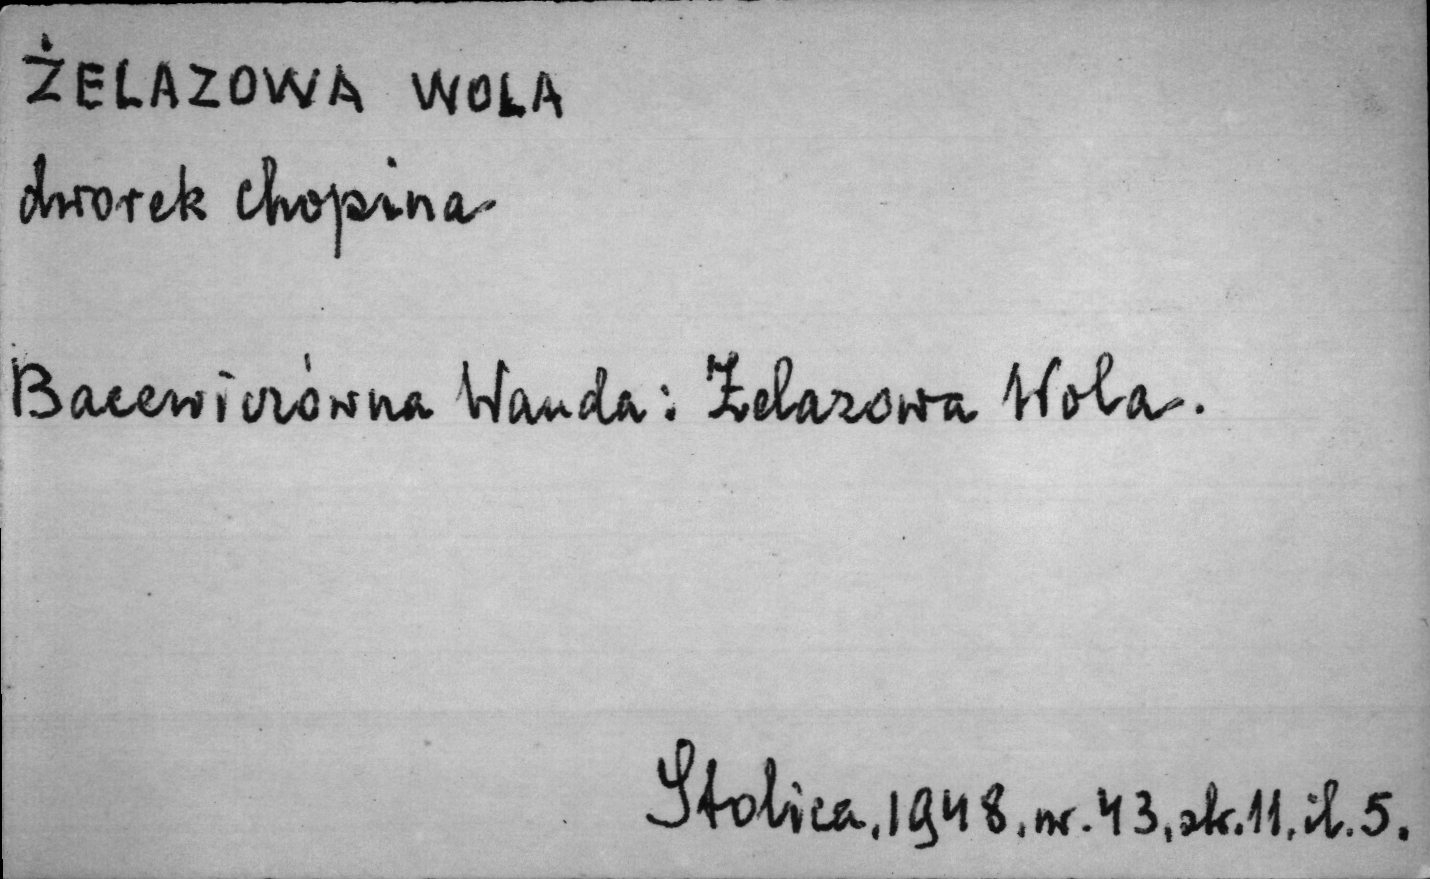 ŻELAZOWA WOLA
dworek Chopina
Bacewiczówna Wanda: Żelazowa Wola.
Stolica, 1948, nr. 43, str. 11, il. 5.